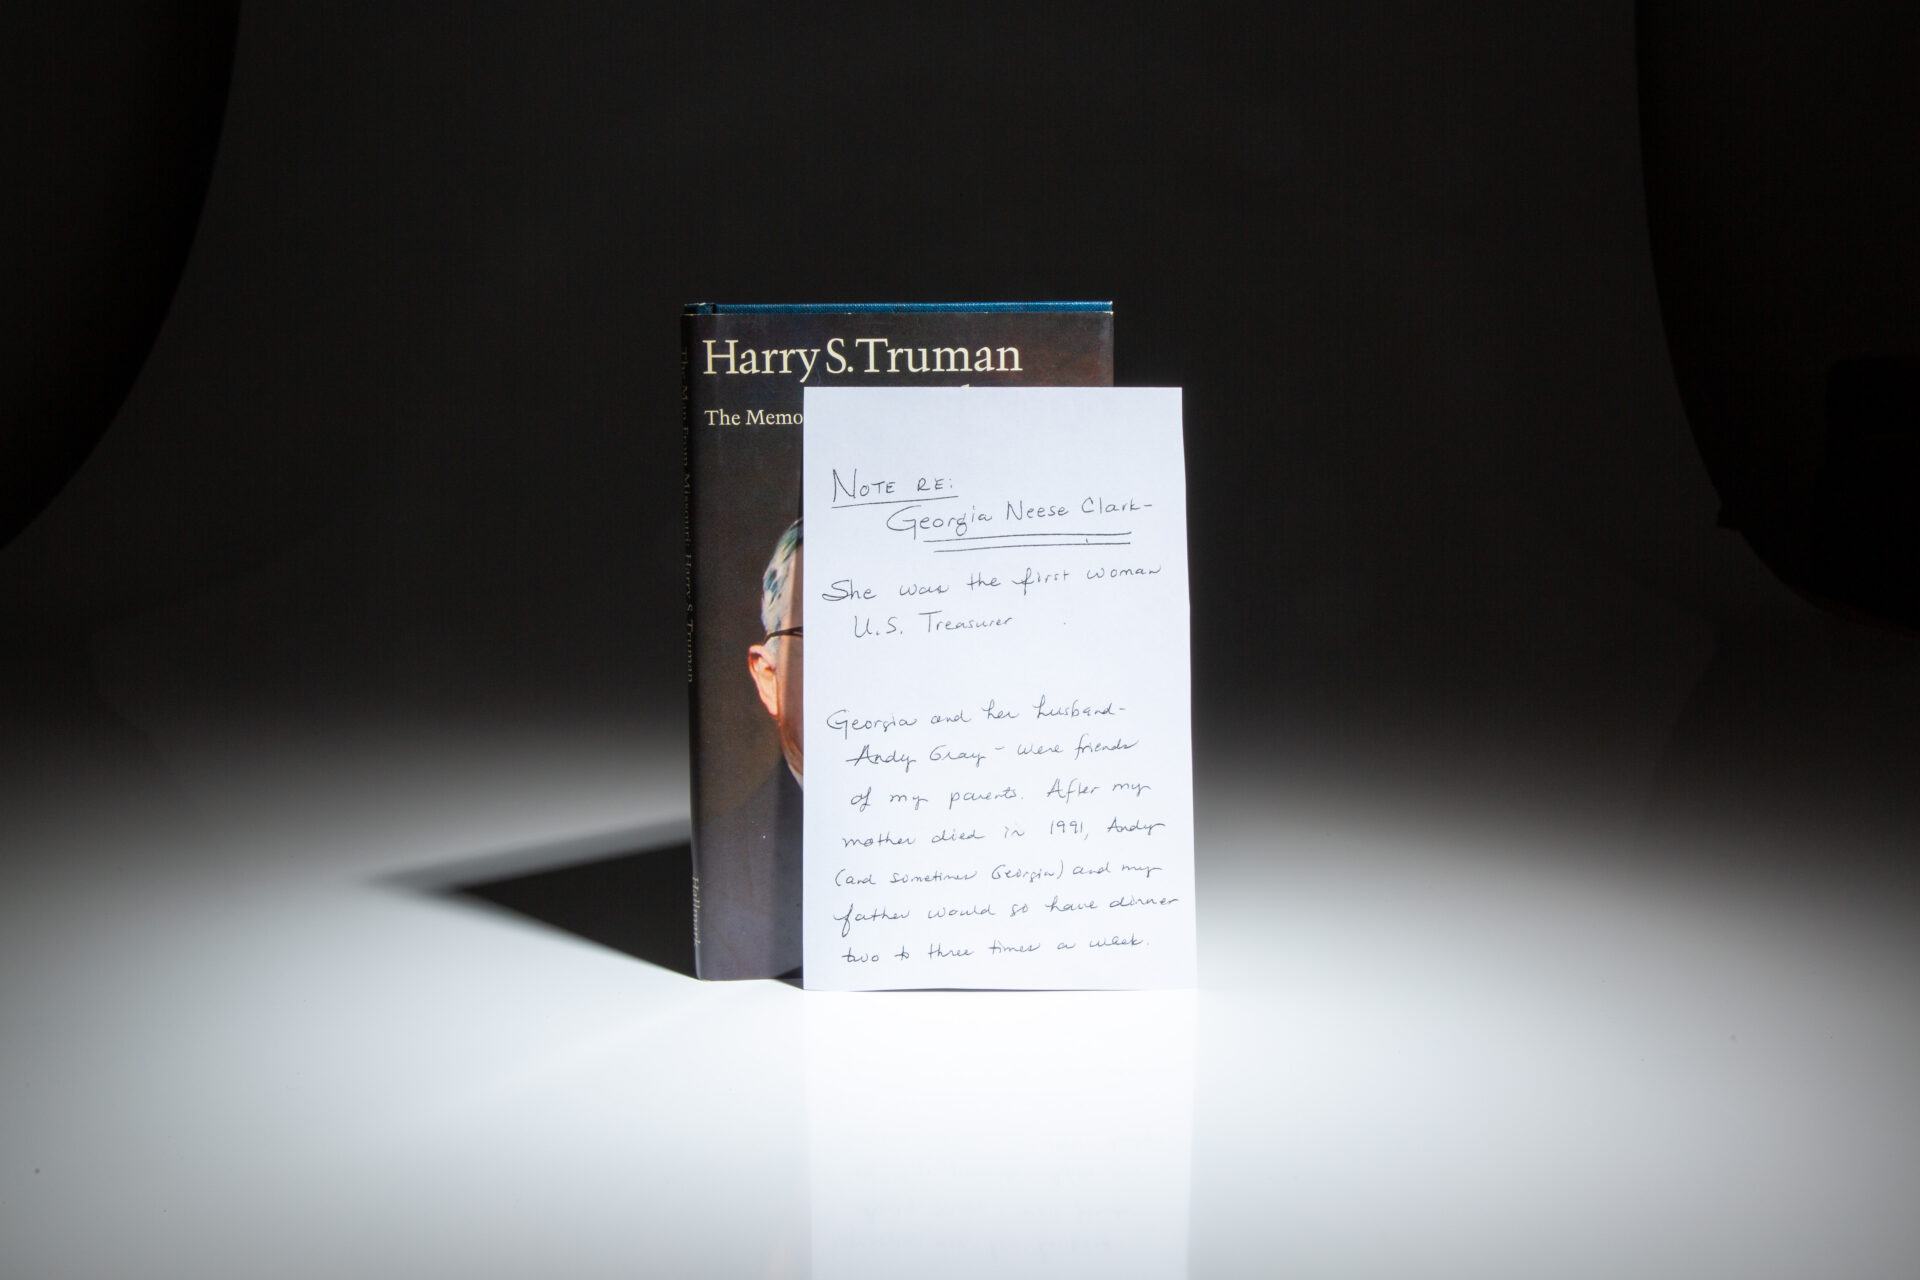 Harry S. Truman
The Memo
The Man From Missouri: Harry S. Truman
Hallmark
NOTE RE:
Georgia Neese Clark—
She was the first woman
U.S. Treasurer
Georgia and her husband—
Andy Gray — were friends
of my parents. After my
mother died in 1991, Andy
(and sometimes Georgia) and my
father would go have dinner
two to three times a week.